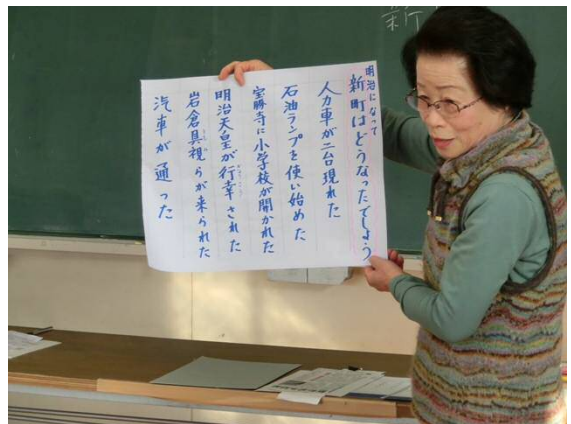 新
明治になって
新町はどうなったでしょう
人力車が二台現れた
石油ランプを使い始めた
宝勝寺に小学校が開かれた
明治天皇が行幸された
岩倉具視らが来られた
汽車が通った